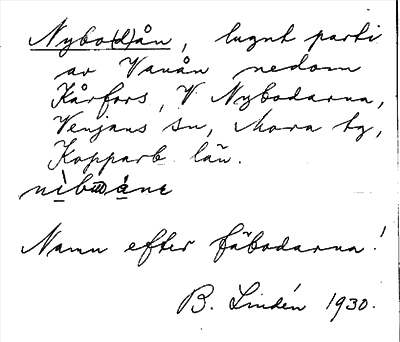 Nybo(d)ån, lugnt parti
av Vanån nedom
Kårfors, V Nybodarna,
Venjans sn, Mora tg,
Kopparb. län.
Namn efter fäbodarna!
B. Lindén 1930.